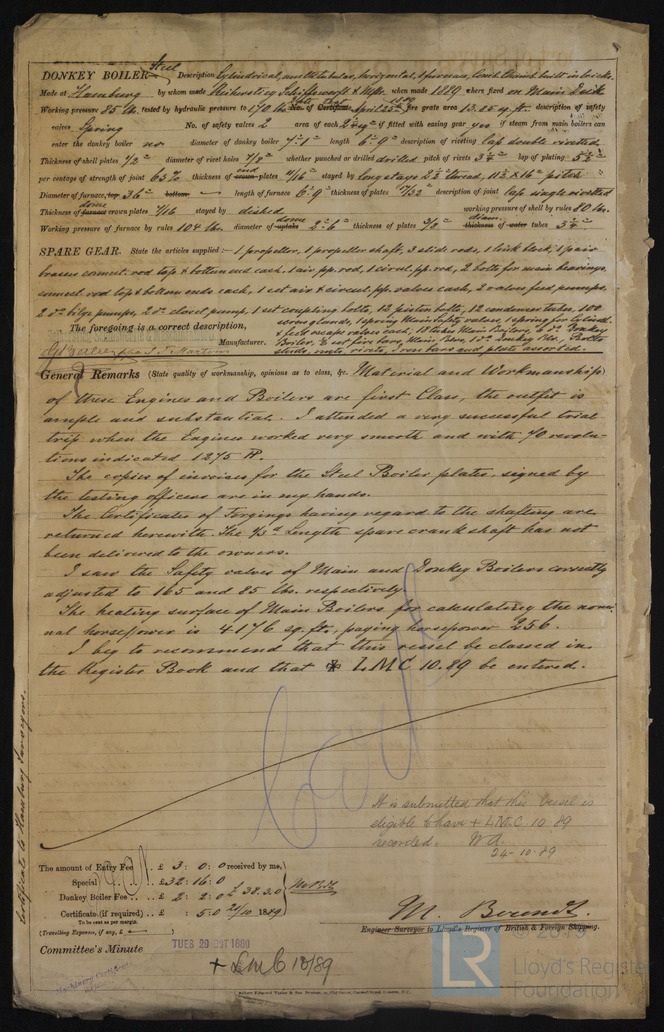 DONKEY BOILER— Steel Description Cylindrical, multitubular, horizontal, 1 furnace,
Made at Hamburg by whom made Reiherstieg Schiffswerft & Mfk. when made 1889 where fixed on Main Deck
Working pressure 85 lb. tested by hydraulic pressure to 170 lb. No. of Certificate April 25th 1889 fire grate area 13.25 sq. ft. description of safety
valves Spring No. of safety valves 2 area of each if fitted with easing gear yes if steam from main boilers can
enter the donkey boiler no diameter of donkey boiler 7'-1" length 6'-9" description of riveting lap double riveted
Thickness of shell plates 7/2" diameter of rivet holes 7/8" whether punched or drilled drilled pitch of rivets lap of plating
per centage of strength of joint 65% thickness of end plates 11/16" stayed by long stays
Diameter of furnace, top 36" bottom length of furnace 6'-9" thickness of plates description of joint lap single riveted
Thickness of furnace crown plates 7/16 stayed by dished working pressure of shell by rules
Working pressure of furnace by rules 104 lb. diameter of uptake dome 2'-6" thickness of plates 3/8" thickness of water tubes diam.
SPARE GEAR. State the articles supplied:— 1 propeller, 1 propeller shaft, 3 slide rods, 1 link block, 1 pair
brasses connect. rod top & bottom end each. 1 air pp. rod, 1 circul. pp. rod, 2 bolts for main bearings,
connect. rod top & bottom ends each, 1 set air & circul. pp. valves each, 2 valves feed pumps,
2 do. bilge pumps, 2 do. closet pump, 1 set coupling bolts, 12 piston bolts, 12 condenser tubes, 100
screw glands, 1 spring Main Safety valves, 1 spring for Cylind.
The foregoing is a correct description,
& feed escape valves each, 18 tubes Main Boilers, 6 do. Donkey
Manufacturer. Boiler, ½ set fire bars, Main Blrs, 1 do. Donkey Blr. Bolts
studs, nuts, rivets, iron bars and plate assorted.
General Remarks (State quality of workmanship, opinions as to class, &c. Material and Workmanship
of these Engines and Boilers are first Class, the outfit is
ample and substantial. I attended a very successful trial
trip when the Engines worked very smooth and with 70 revolu-
tions indicated 1275 H.
The copies of invoices for the Steel Boiler plates signed by
the testing officers are in my hands.
The Certificates of Forgings having regard to the shafting are
returned herewith. The 1/3d Length spare crank shaft has not
been delivered to the owners.
I saw the Safety valves of Main and Donkey Boilers correctly
adjusted to 165 and 85 lbs. respectively.
The heating surface of Main Boilers for calculating the nomi-
nal horsepower is 4176 sq. ft., paying horsepower 256.
I beg to recommend that this vessel be classed in
the Register Book and that ✠ L.M.C 10.89 be entered.
It is submitted that this vessel is
eligible to have + L.M.C 10.89
recorded. W.A.
24-10-89
Certificate to Hamburg Surveyors.
The amount of Entry Fee .. £ 3 : 0 : 0 received by me,
Special .. £ 32 : 16 : 0
Donkey Boiler Fee .. £ 2 : 2 : 0
Certificate (if required) .. £ : 5 : 0 21/10 1889
To be sent as per margin.
(Travelling Expenses, if any, £ )
Engineer Surveyor to Lloyd's Register of British & Foreign Shipping.
Committee's Minute TUES 29 OCT 1889
+ LMC 10/89
LR
Lloyd's Register
Foundation